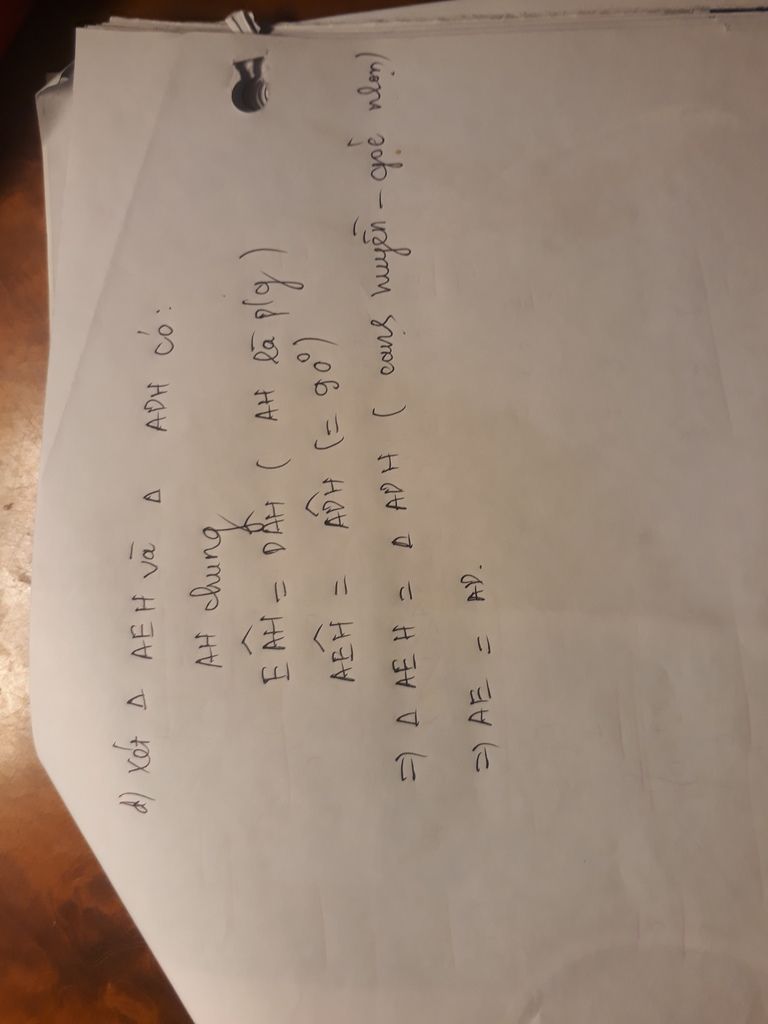 d) Xét Δ AEH và Δ ADH có:
AH chung
EAH = DAH ( AH là p/g )
AEH = ADH (= 90°)
=) Δ AEH = Δ ADH ( cạnh huyền - góc nhọn)
=) AE = AD.